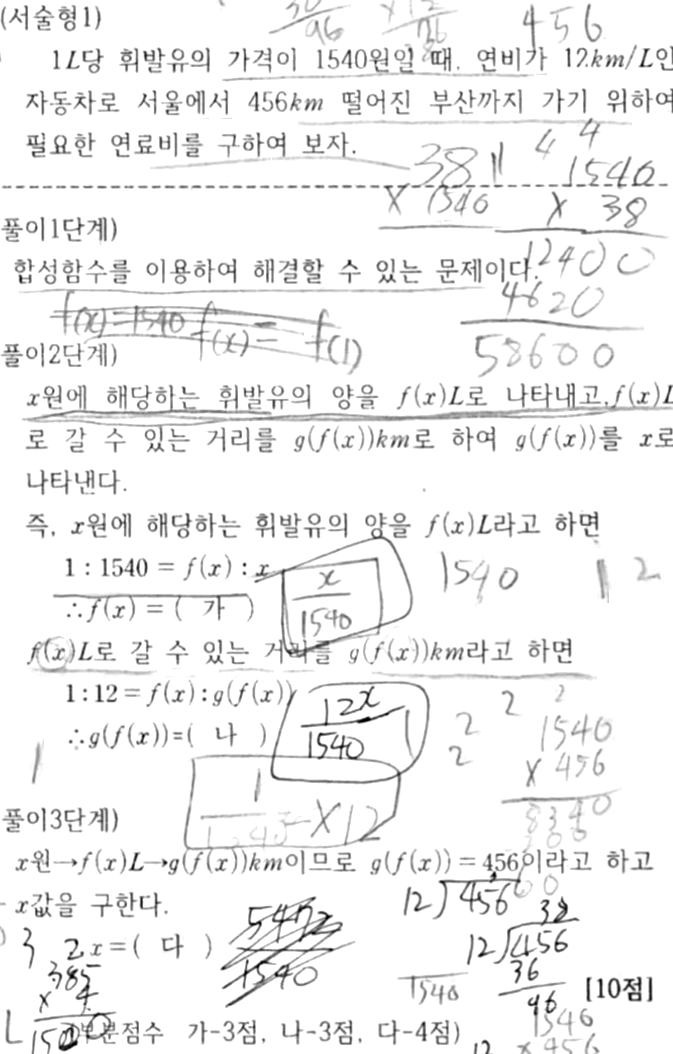 (서술형1)
456
1L당 휘발유의 가격이 1540원일 때, 연비가 12km/L인
자동차로 서울에서 456km 떨어진 부산까지 가기 위하여
필요한 연료비를 구하여 보자.
38 1540
× 1540 × 38
풀이1단계)
합성함수를 이용하여 해결할 수 있는 문제이다.
12400
4620
58600
f(x)=1540 f(x)= f(1)
풀이2단계)
x원에 해당하는 휘발유의 양을 f(x)L로 나타내고, f(x)L
로 갈 수 있는 거리를 g(f(x))km로 하여 g(f(x))를 x로
나타낸다.
즉, x원에 해당하는 휘발유의 양을 f(x)L라고 하면
1 : 1540 = f(x) : x
∴f(x) = ( 가 ) x/1540
1540 12
f(x)L로 갈 수 있는 거리를 g(f(x))km라고 하면
1 : 12 = f(x) : g(f(x))
∴g(f(x))=( 나 ) 12x/1540
1540
× 456
× 12
풀이3단계)
x원→f(x)L→g(f(x))km이므로 g(f(x)) = 456이라고 하고
x값을 구한다.
12)456
x=( 다 )
1540
38
12)456
36
96
[10점]
385
× 4
부분점수 가-3점, 나-3점, 다-4점)
1540
× 456
12